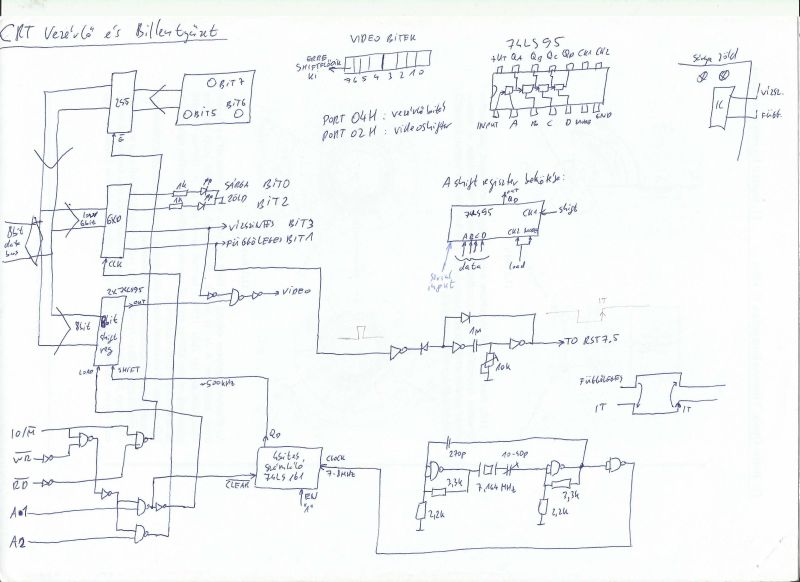 CRT Vezérlő és Billentyűzet
VIDEO BITEK
ERRE
SHIFTELŐDIK
KI
7 6 5 4 3 2 1 0
PORT 04H : vezérlőbitek
PORT 02H : videoshifter
74LS95
+UT QA QB QC QD CK1 CK2
INPUT A B C D MODE GND
sárga zöld
IC
vízsz.
függ.
245
G
BIT7
BIT5
BIT6
8bit
data
bus
6XD
CLK
1k
1k
SÁRGA BIT0
ZÖLD BIT2
VÍZSZINTES BIT3
FÜGGŐLEGES BIT1
A shift regiszter bekötése:
OUT
QD
74LS95
CK1
shift
A B C D
CK2 MODE
serial
input
data
load
2x74LS95
8bit
8bit
shift
reg
OUT
LOAD
SHIFT
VIDEO
1M
10k
IT
TO RST7.5
~500kHz
QD
4bites
számláló
74LS161
CLOCK
7-8MHz
CLEAR
EN
"1"
FÜGGŐLEGES
IT
IT
IO/M
WR
RD
A1
A2
270p
10-50p
3,3k
7,164MHz
3,3k
2,2k
2,2k